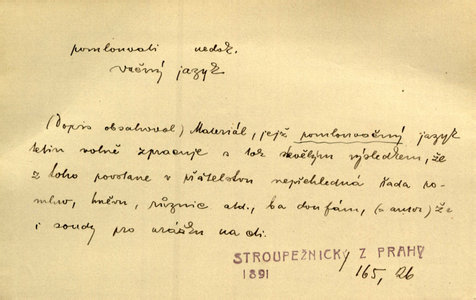 pomlouvati nedok.
věčný jazyk
(Dopis obsahoval) Materiál, jejž pomlouvačný jazyk
tetin volně zpracuje s tak skvělým výsledkem, že
z toho povstane v přátelstvu nepřehledná řada po-
mluv, hněvu, různic atd., ba doufám, (s autor) že
i soudy pro urážku na cti.
STROUPEŽNICKÝ Z PRAHY
1891 165, 26